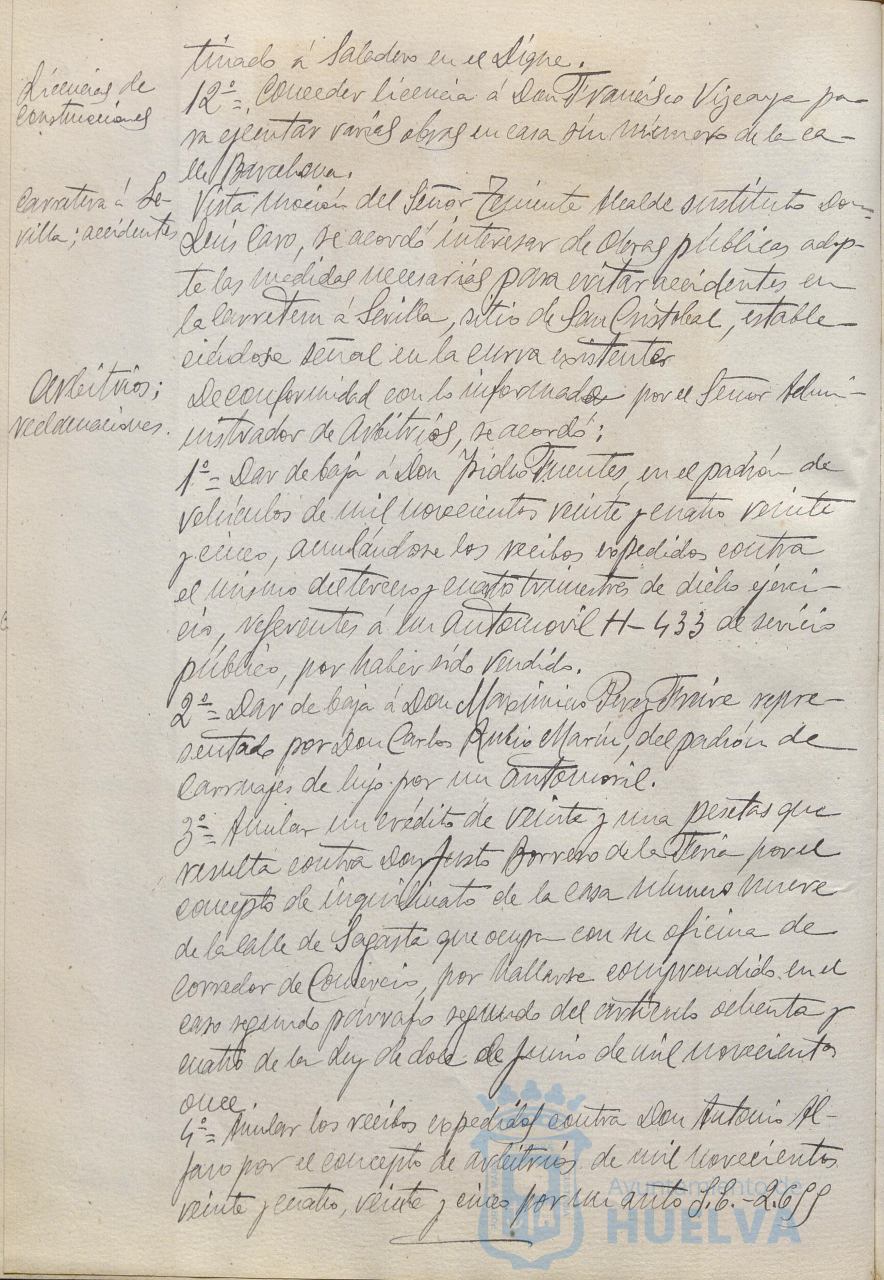 tinado á Saladero en el Digne.
Licencias de
construcciones
12º= Conceder licencia á Don Francisco Vizcaya pa-
ra ejecutar varias obras en casa sin número de la ca-
lle Barcelona.
Carretera á Se-
villa; accidentes
Vista moción del Señor Teniente Alcalde sustituto Don
Luis Caro, se acordó interesar de Obras públicas adop-
te las medidas necesarias para evitar accidentes en
la carretera á Sevilla, sitio de San Cristobal, estable-
ciéndose señal en la curva existente.
Arbitrios;
reclamaciones.
De conformidad con lo informado por el Señor Admi-
nistrador de Arbitrios, se acordó:
1º= Dar de baja á Don Isidro Fuentes, en el padrón de
vehículos de mil novecientos veinte y cuatro veinte
y cinco, anulándose los recibos expedidos contra
el mismo del tercero y cuarto trimestres de dicho ejerci-
cio, referentes á un automovil H-433 de servicio
público, por haber sido vendido.
2º= Dar de baja á Don Maximino Perez Freire repre-
sentado por Don Carlos Rubio Marín, del padrón de
carruajes de lujo por un automovil.
3º= Anular un crédito de veinte y una pesetas que
resulta contra Don Justo Borrero de la Feria por el
concepto de inquilinato de la casa número nueve
de la calle de Sagasta que ocupa con su oficina de
Corredor de Comercio, por hallarse comprendido en el
caso segundo párrafo segundo del artículo ochenta y
cuatro de la Ley de doce de Junio de mil novecientos
once.
4º= Anular los recibos expedidos contra Don Antonio Al-
faro por el concepto de arbitrios de mil novecientos
veinte y cuatro, veinte y cinco por un auto S.E.-2.655
Ayuntamiento de
HUELVA